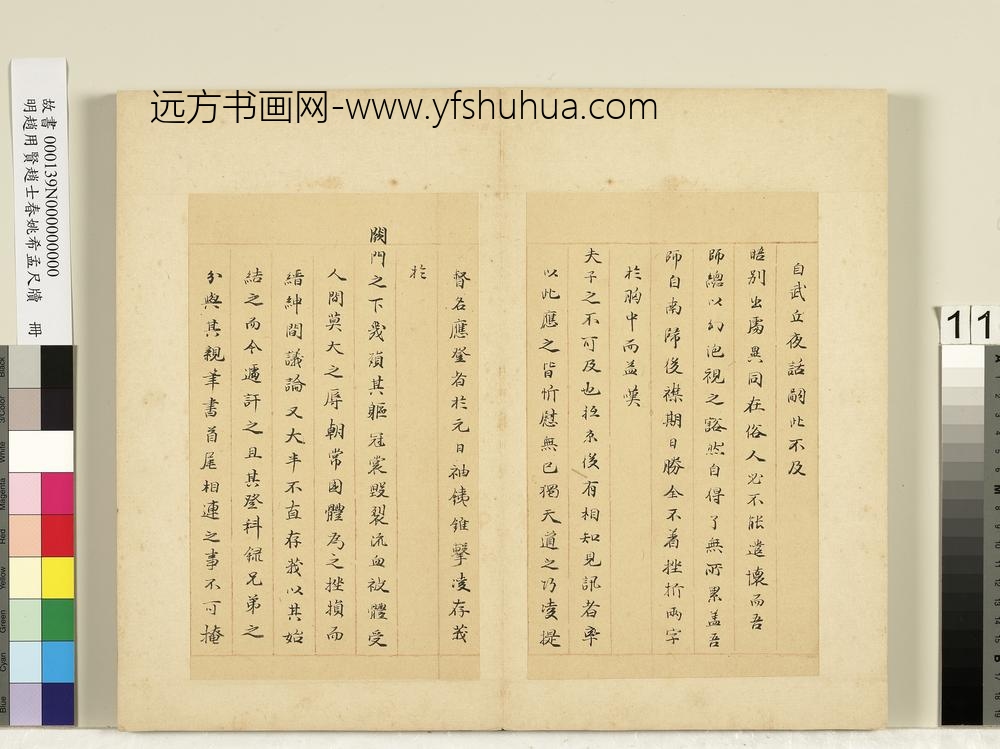 远方书画网-www.yfshuhua.com
故書 000139N000000000
明趙用賢趙士春姚希孟尺牘 冊
11
自武丘夜話嗣此不及
晤別出處異同在俗人必不能遣懷而吾
師總以幻泡視之豁然自得了無所累蓋吾
師自南歸後襟期日勝全不著挫折兩字
於胸中而益嘆
夫子之不可及也抵京後有相知見訊者率
以此應之皆忻慰無已獨天道之巧凌提
督名應登者於元日袖銕錐擊凌存莪
於
闕門之下幾殞其軀冠裳毀裂流血被體受
人間莫大之辱朝常國體為之挫損而
縉紳間議論又大半不直存莪以其始
結之而今遽訐之且其登科錄兄弟之
分與其親筆書首尾相連之事不可掩
Black
3/Color
White
Magenta
Red
Yellow
Green
Cyan
Blue